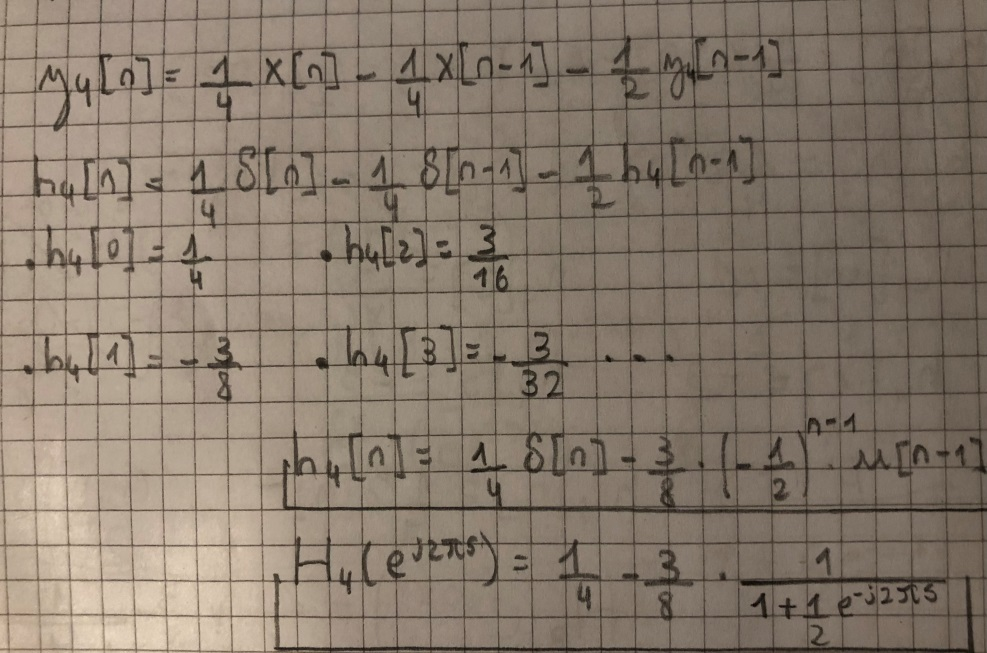 y₄[n] = 1/4 x[n] - 1/4 x[n-1] - 1/2 y₄[n-1]
h₄[n] = 1/4 δ[n] - 1/4 δ[n-1] - 1/2 h₄[n-1]
• h₄[0] = 1/4 • h₄[2] = 3/16
• h₄[1] = - 3/8 • h₄[3] = - 3/32 ...
h₄[n] = 1/4 δ[n] - 3/8 · (- 1/2)ⁿ⁻¹ · u[n-1]
H₄(e^(j2πs)) = 1/4 - 3/8 · 1/(1 + 1/2 e^(-j2πs))